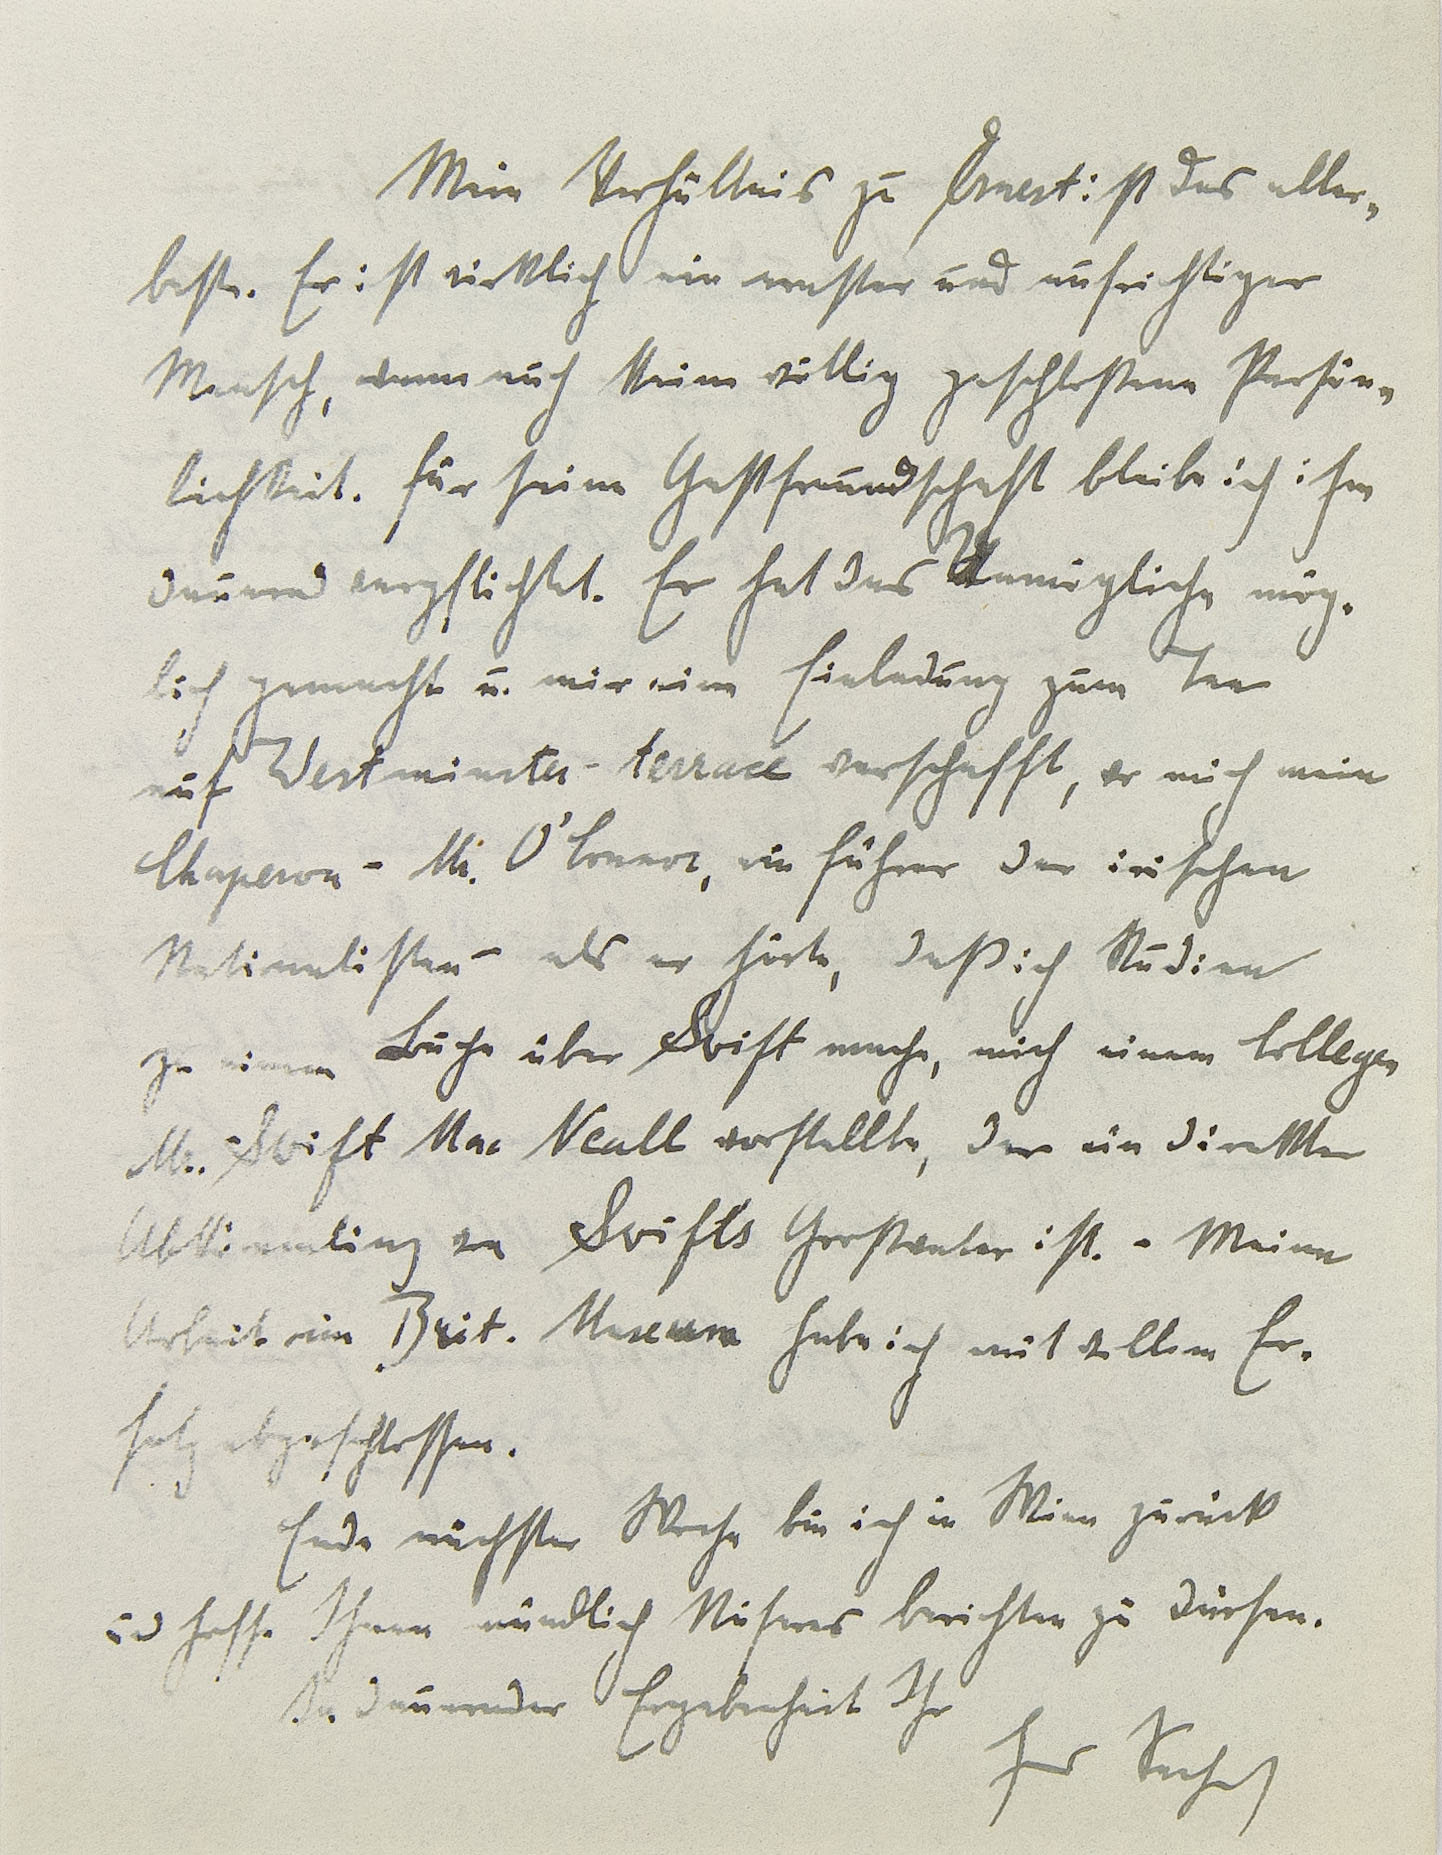 Mein Verhältnis zu Ernest ist das aller-
beste. Er ist wirklich ein ernster und aufrichtiger
Mensch, wenn auch keine völlig geschlossene Persön-
lichkeit. Für seine Gastfreundschaft bleibe ich ihm
dauernd verpflichtet. Er hat das Unmögliche mög-
lich gemacht u. mir eine Einladung zum Tee
auf Westminster-terrace verschafft, wo mich mein
Chaperon - Mr. O'Connor, ein Führer der irischen
Nationalisten - als er hörte, daß ich Studien
zu einem Buche über Swift mache, mich einem Collegen
Mr. Swift Mac Neall vorstellte, der ein direkter
Abkömmling von Swifts Großvater ist. - Meine
Arbeit im Brit. Museum habe ich mit vollem Er-
folg abgeschlossen.
Ende nächster Woche bin ich in Wien zurück
und hoffe Ihnen mündlich Näheres berichten zu dürfen.
In dauernder Ergebenheit Ihr
Hans Sachs